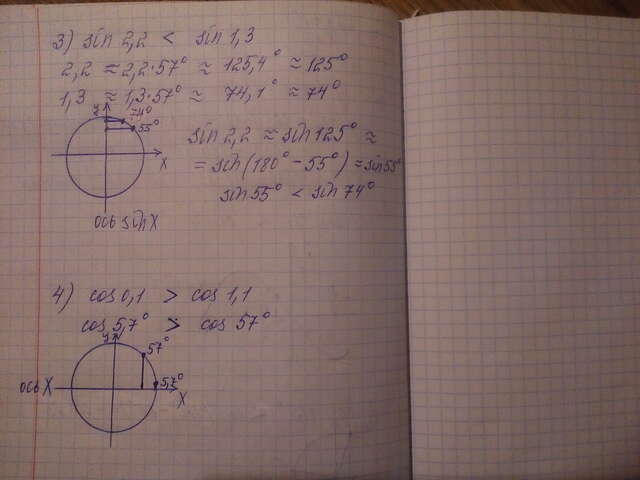 3) sin 2,2 < sin 1,3
2,2 ≈ 2,2·57° ≈ 125,4° ≈ 125°
1,3 ≈ 1,3·57° ≈ 74,1° ≈ 74°
y 74°
55°
x
ось sin x
sin 2,2 ≈ sin 125° ≈
= sin(180° - 55°) = sin 55°
sin 55° < sin 74°
4) cos 0,1 > cos 1,1
cos 5,7° > cos 57°
y 57°
5,7°
ось x
x